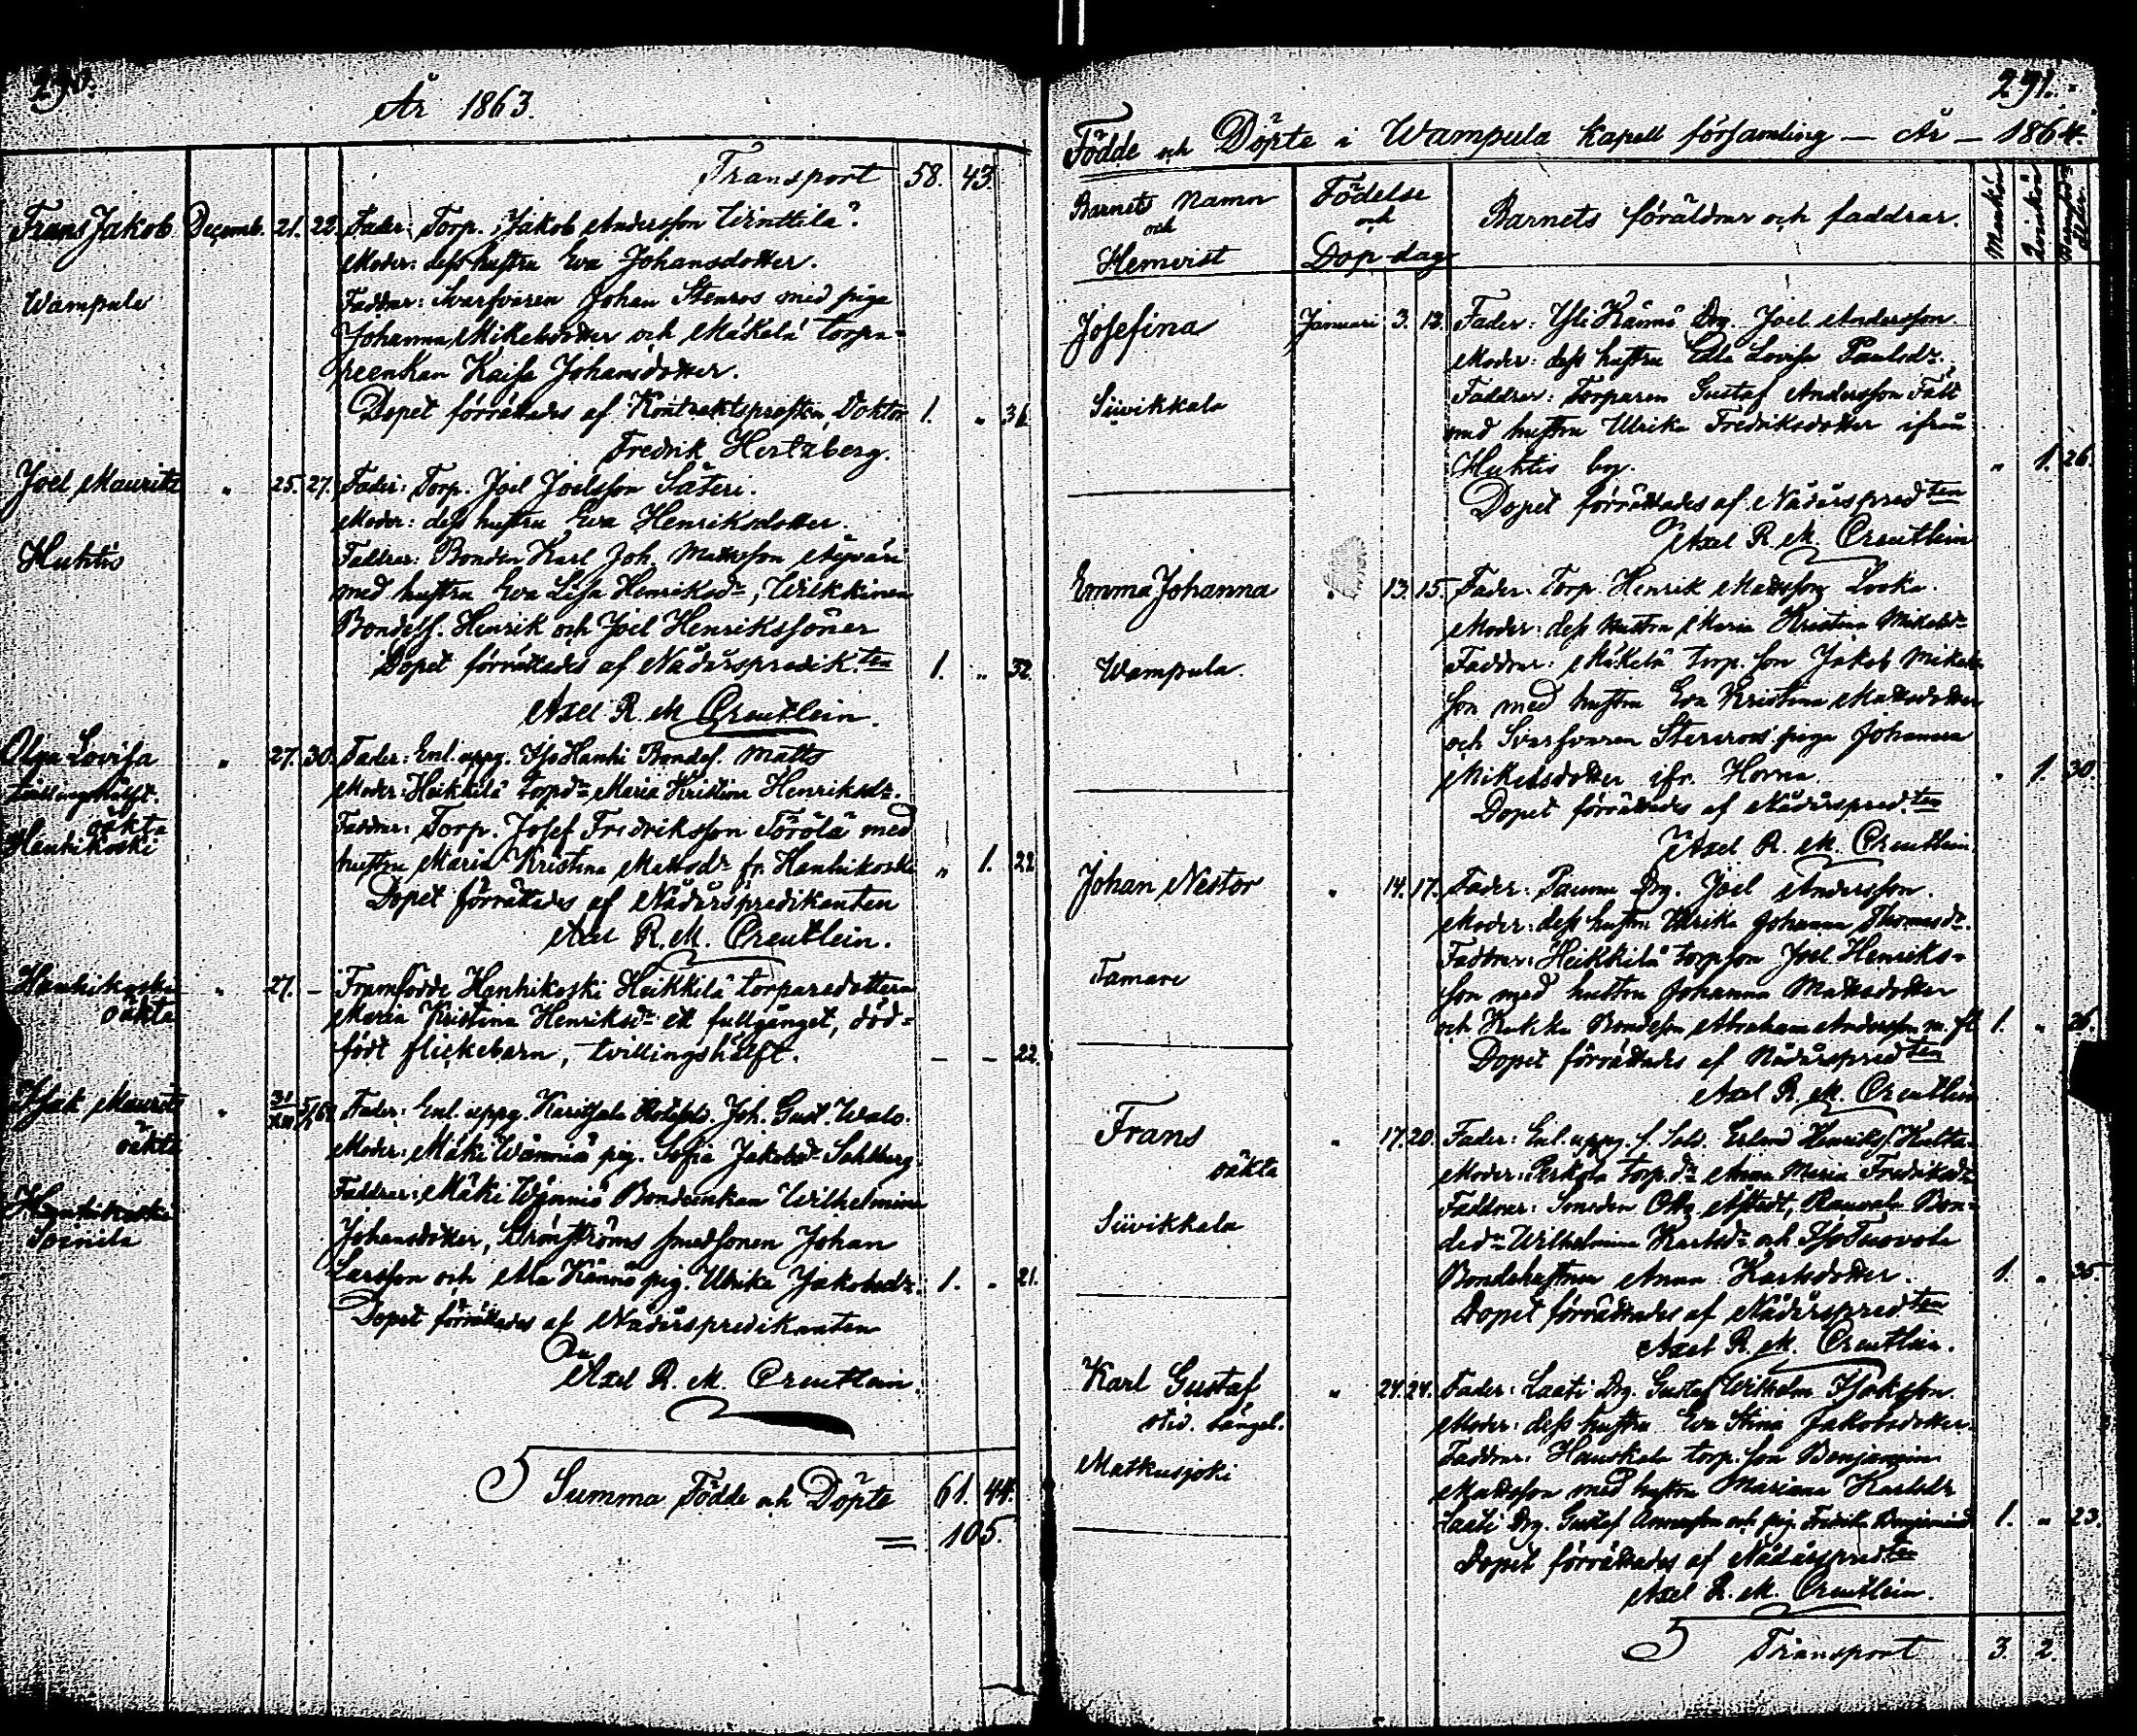 290.
År 1863.
Transport 58. 43.
Frans Jakob Decemb. 21. 22. Fader: Torp. Jakob Andersson Winttilä.
Moder: dess hustru Eva Johansdotter.
Wampula Faddrar: Svarfvaren Johan Stenros med piga
Johanna Mikelsdotter och Mäkelä torpa-
reenkan Kaisa Johansdotter.
Dopet förrättades af Kontraktsprosten, Doktor 1. " 36
Fredrik Hertzberg.
Joel Mauritz " 25. 27. Fader: Torp. Joel Joelsson Säteri.
Moder: dess hustru Eva Henriksdotter.
Huhtis Faddrar: Bonden Karl Joh. Mattsson
med hustru Eva Lisa Henriksdr, Wilkkinen
Bondess. Henrik och Joel Henrikssöner
Dopet förrättades af Nådårspredik.ten 1. " 32.
Axel R. M Creutlein.
Olga Lovisa " 27. 30. Fader: Enl. uppg. Iso Hanhi Bondes. Matts
tvillingshälft. Moder: Heikkilä torpdr Maria Kristina Henriksdr.
oäkta Faddrar: Torp. Josef Fredriksson Törölä med
Hanhikoski hustru Maria Kristina Mattsdr fr. Hanhikoski " 1. 22
Dopet förrättades af Nådårspredikanten
Axel R. M. Creutlein.
Hanhikoski " 27. – Framfödde Hanhikoski Heikkilä torparedottern
oäkta Maria Kristina Henriksdr ett fullgånget, död-
födt flickebarn, tvillingshälft. – – 22.
Isak Mauritz " 31/XII 5/1 64 Fader: Enl. uppg. Karitsala Joh. Gust. Walo.
oäkta Moder: Mäki Wänniä pig. Sofia Jakobsdr Sahlberg.
Faddrar: Mäki Wänniä Bondeenkan Wilhelmina
Hanhikoski Johansdotter, Strönströms smedsonen Johan
Soinila
Larsson och Ala Kännö pig. Ulrika Jakobsdr. 1. " 21.
Dopet förrättades af Nådårspredikanten
Axel R. M. Creutlein.
Summa Födde och Döpte 61. 44.
= 105.
291.
Födde och Döpte i Wampula kapell församling – År – 1864.
Barnets Namn och Hemvist
Födelse och Dop-dag
Barnets föräldrar och faddrar.
Mankön
Qvinkön
Josefina Januari 3. 13. Fader: Yli Kännö Drg. Joel Andersson.
Moder: dess hustru Edla Lovisa Paulsdr.
Siivikkala Faddrar: Torparen Gustaf Andersson Fält
med hustru Ulrika Fredriksdotter ifrån
Huhtis by. " 1. 26.
Dopet förrättades af Nådårspredten
Axel R. M. Creutlein
Emma Johanna " 13. 15. Fader: Torp. Henrik Mattsson Looka.
Moder: dess hustru Maria Kristina Mikelsdr
Wampula. Faddrar: Mäkelä torp. son Jakob Mikels-
son med hustru Eva Kristina Mattsdotter
och Svarfvaren Stenroos piga Johanna
Mikelsdotter ifr. Horna. " 1. 30.
Dopet förrättades af Nådårspred.ten
Axel R. M. Creutlein.
Johan Nestor " 14. 17. Fader: Paunu Drg. Joel Andersson.
Moder: dess hustru Ulrika Johanna Thomasdr.
Tamare Faddrar: Heikkilä torpson Joel Henriks-
son med hustru Johanna Mattsdotter
och Bondeson Abraham Andersson m. fl. 1. " 26.
Dopet förrättades af Nådårspredten
Axel R. M. Creutlein
Frans " 17. 20. Fader: Enl. uppg. f. Sold. Erland Henrikss.
oäkta Moder: Perkola torp.dr Anna Maria Fredriksdr
Siivikkala Faddrar: Smeden Otto Rauvala Bon-
dedr Wilhelmina Karlsdr och Iso Tuovola
Bondehustrun Anna Karlsdotter. 1. " 35.
Dopet förrättades af Nådårspredten
Axel R. M. Creutlein.
Karl Gustaf " 24. 24. Fader: Laati Drg. Gustaf Wilhelm Isaksson.
Moder: dess hustru Eva Stina Jakobsdotter.
Matkusjoki Faddrar: Hauskala torp. son Benjamin
Mattsson med hustru Mariana Karlsdr
Laati Drg. Gustaf och pig. Fredrika 1. " 23.
Dopet förrättades af Nådårspredten
Axel R. M. Creutlein.
Transport 3. 2.